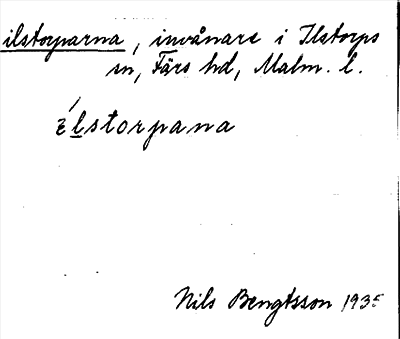 ilstorparna, invånare i Ilstorps
sn, Färs hd, Malm. l.
ɛ́lstorpana
Nils Bengtsson 1935